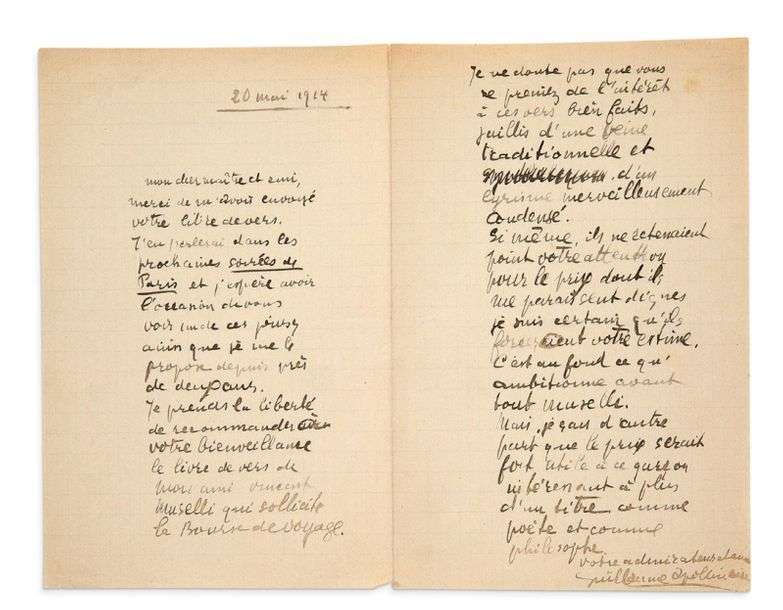 20 mai 1914
mon cher maître et ami,
merci de m'avoir envoyé
votre livre de vers.
J'en parlerai dans les
prochaines soirées de
Paris et j'espère avoir
l'occasion de vous
voir un de ces jours
ainsi que je me le
propose depuis près
de deux ans.
Je prends la liberté
de recommander à
votre bienveillance
le livre de vers de
mon ami vincent
muselli qui sollicite
la Bourse de voyage.
Je ne doute pas que vous
ne preniez de l'intérêt
à ces vers bien faits,
jaillis d'une veine
traditionnelle et
d'un
lyrisme merveilleusement
condensé.
Si même, ils ne retenaient
point votre attention
pour le prix dont ils
me paraissent dignes
je suis certain qu'ils
forceraient votre estime.
C'est au fond ce qu'
ambitionne avant
tout muselli.
Mais, je sais d'autre
part que le prix serait
fort utile à ce garçon
intéressant à plus
d'un titre comme
poète et comme
philosophe
votre admirateur et ami
guillaume apollinaire